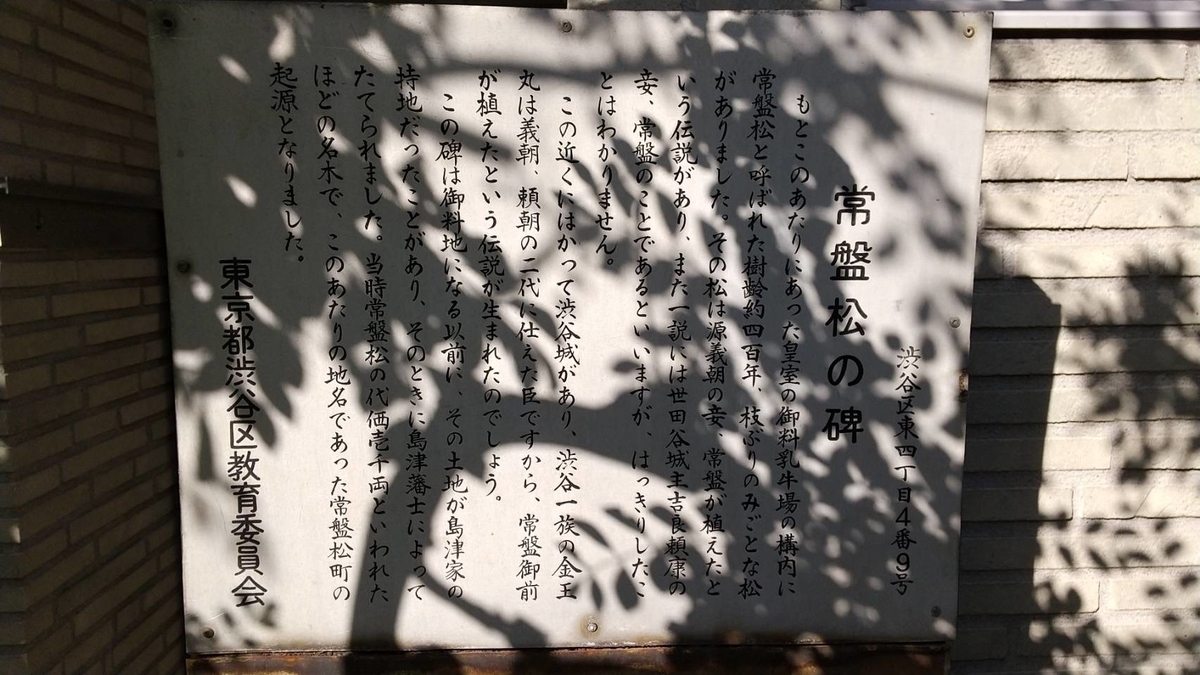 渋谷区東四丁目4番9号
常盤松の碑
もとこのあたりにあった皇室の御料乳牛場の構内に
常盤松と呼ばれた樹齢約四百年、枝ぶりのみごとな松
がありました。その松は源義朝の妾、常盤が植えたと
いう伝説があり、また一説には世田谷城主吉良頼康の
妾、常盤のことであるといいますが、はっきりしたこ
とはわかりません。
この近くにはかって渋谷城があり、渋谷一族の金王
丸は義朝、頼朝の二代に仕えた臣ですから、常盤御前
が植えたという伝説が生まれたのでしょう。
この碑は御料地になる以前に、その土地が島津家の
持地だったことがあり、そのときに島津藩士によって
たてられました。当時常盤松の代価壱千両といわれた
ほどの名木で、このあたりの地名であった常盤松町の
起源となりました。
東京都渋谷区教育委員会